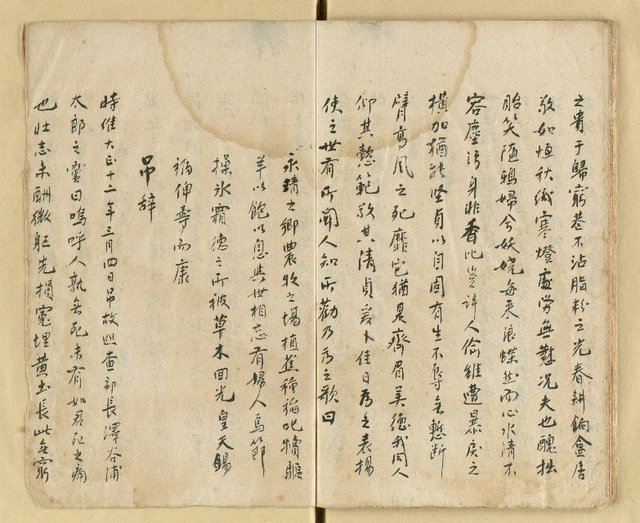 之貴于歸窮巷不沾脂粉之光春耕餉盒居
敬如恒秋織寒燈處勞無懟況夫也醜拙
貽笑隨鴉婦兮妖嬈每來浪蝶然而心水清不
容塵污身非香比豈許人偷雖遭暴戾之
橫加猶能堅貞以自固有生不辱無慙斷
臂高風之死靡它猶是齊眉美德我同人
仰其懿範欽其清貞爰卜佳日為之表揚
使之世有所聞人知所勸乃為之歌曰
永靖之鄉農牧之場植蕉種稻叱犢驅
羊以飽以息與世相忘有婦人焉節
操氷霜德之所被草木回光皇天錫
福俾壽而康
弔辞
時維大正十二年三月四日弔故巡查部長澤谷浦
太郎之靈曰嗚呼人孰無死未有如君死之痛
也壯志未酬微軀先損冤埋黄土長此無窮